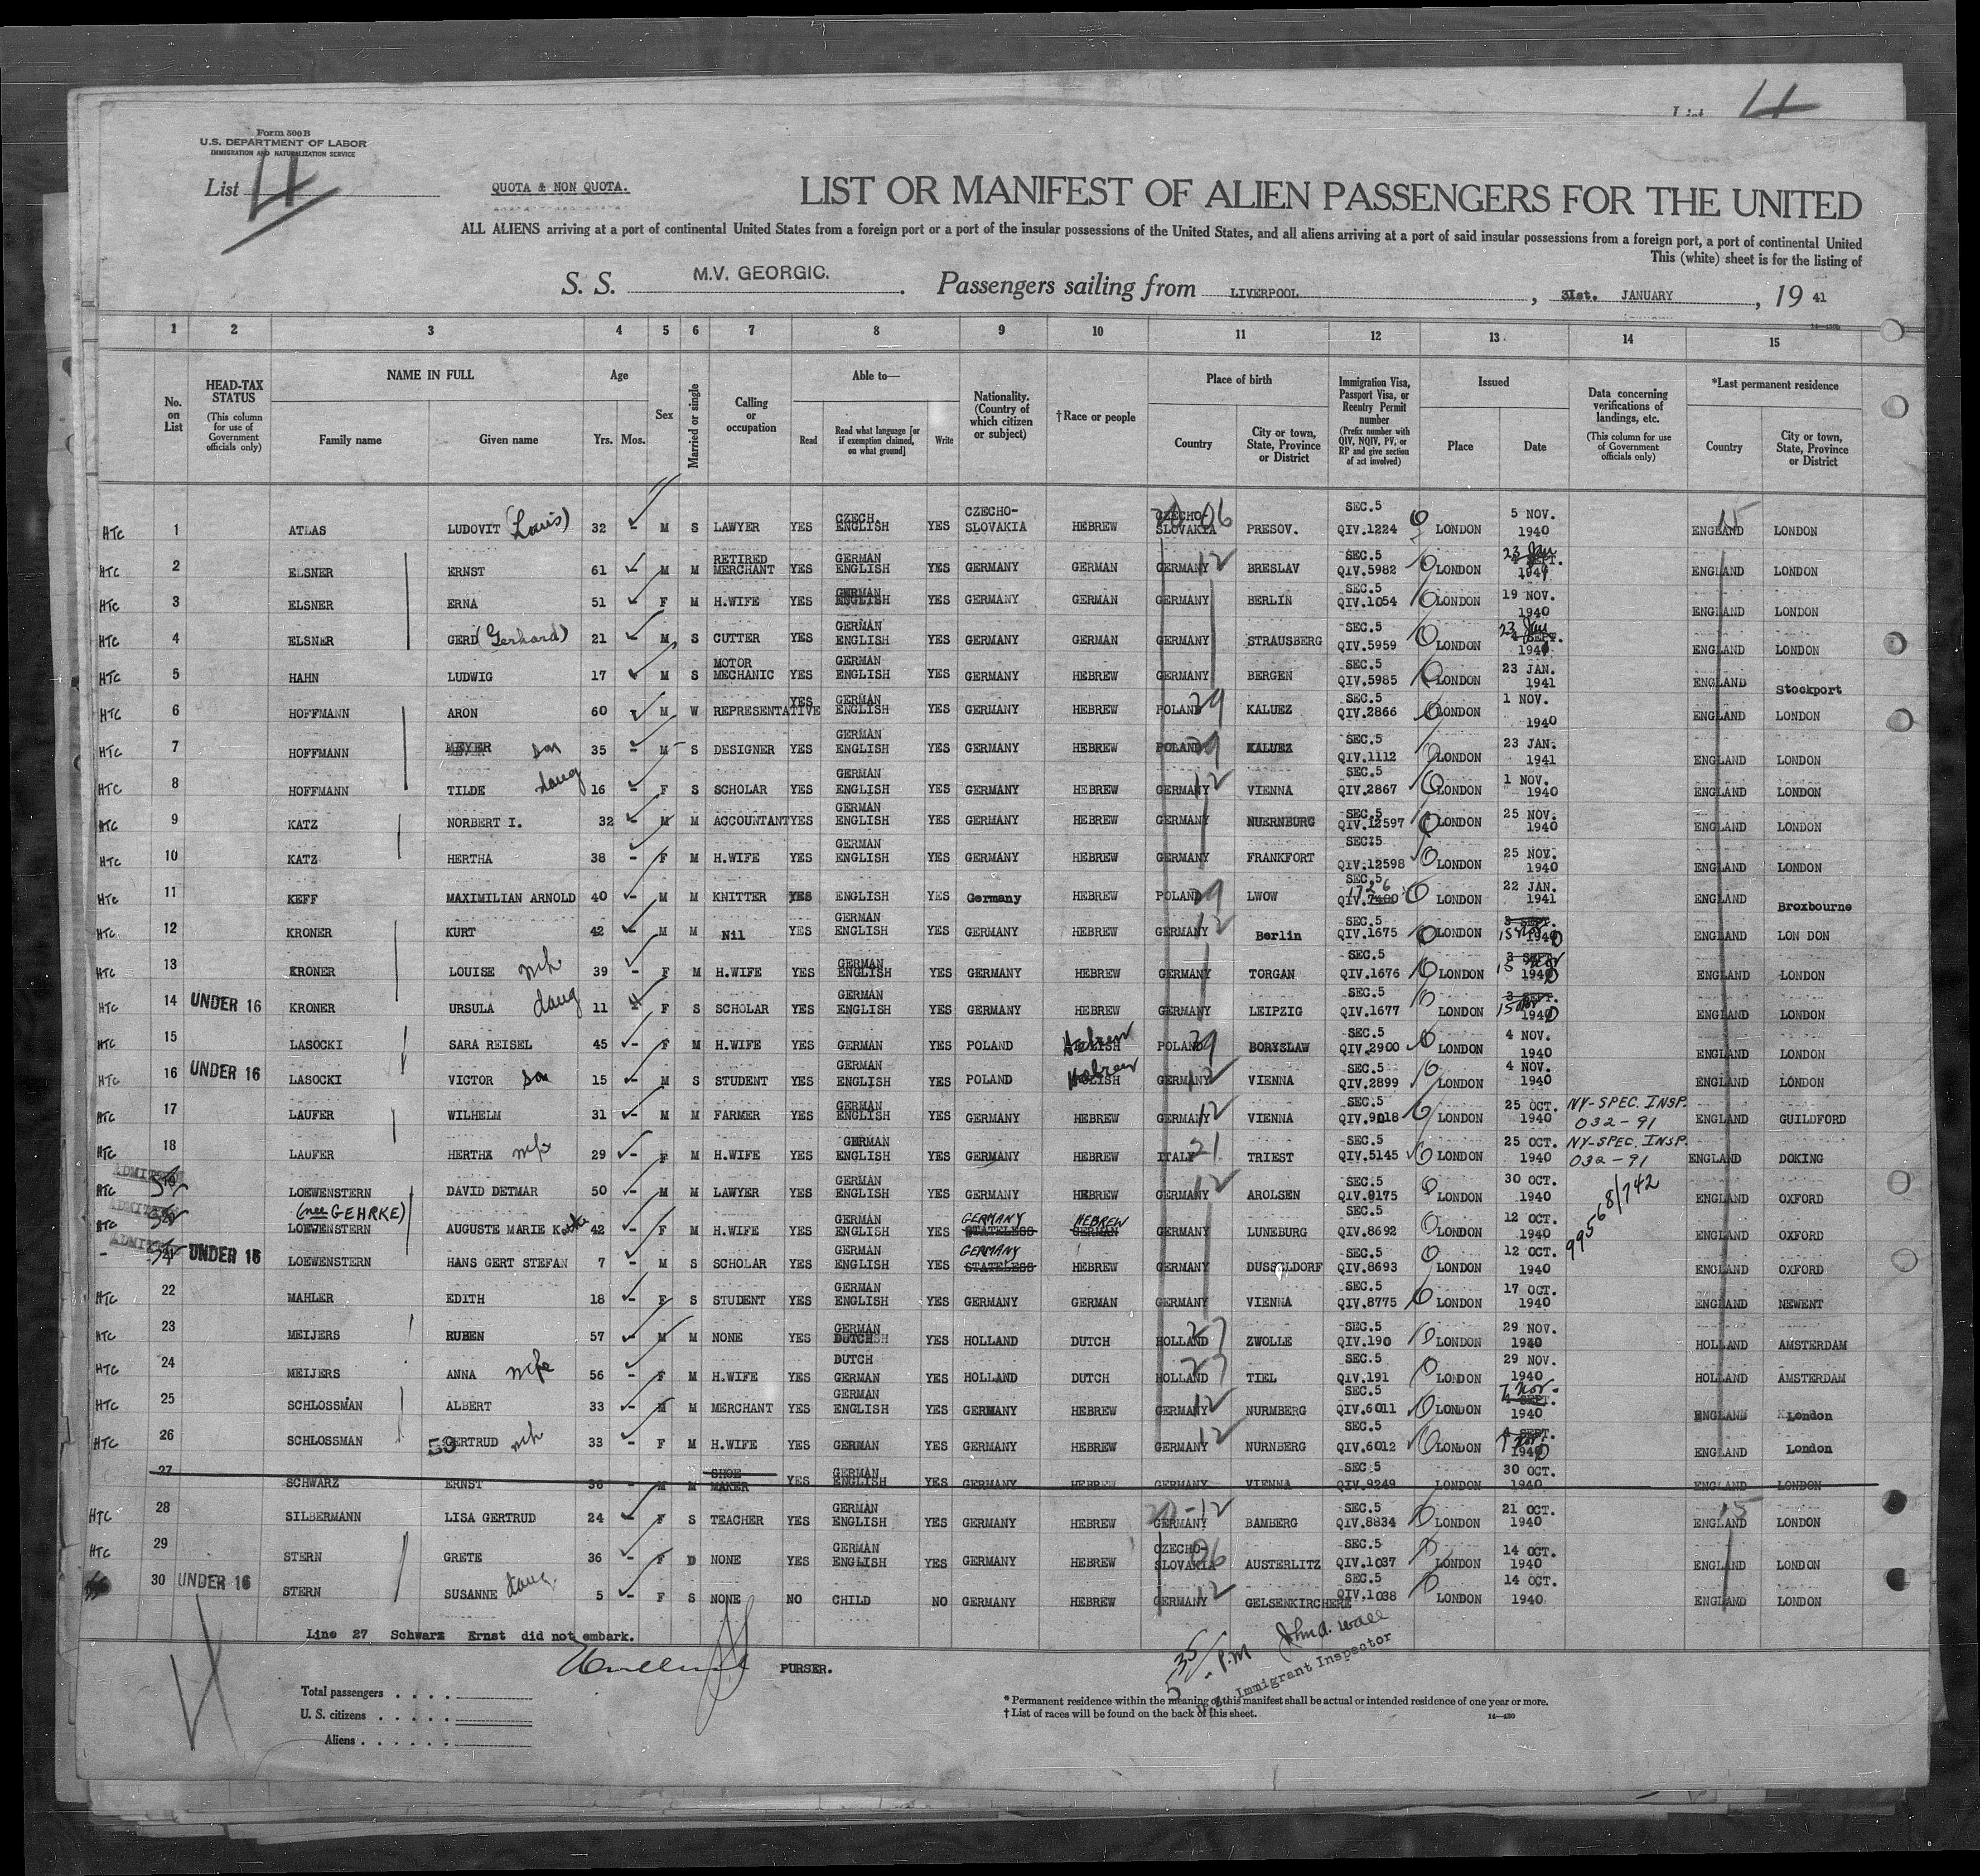 List 4
Form 500 B
U.S. DEPARTMENT OF LABOR
IMMIGRATION AND NATURALIZATION SERVICE
List 4
QUOTA & NON QUOTA.
LIST OR MANIFEST OF ALIEN PASSENGERS FOR THE UNITED
ALL ALIENS arriving at a port of continental United States from a foreign port or a port of the insular possessions of the United States, and all aliens arriving at a port of said insular possessions from a foreign port, a port of continental United
This (white) sheet is for the listing of
S. S. M.V. GEORGIC. Passengers sailing from LIVERPOOL, 31st. JANUARY, 19 41
1 2 3 4 5 6 7 8 9 10 11 12 13 14 15
No. on List
HEAD-TAX STATUS (This column for use of Government officials only)
NAME IN FULL
Family name Given name
Age Yrs. Mos.
Sex
Married or single
Calling or occupation
Able to— Read Read what language [or if exemption claimed, on what ground] Write
Nationality. (Country of which citizen or subject)
†Race or people
Place of birth Country City or town, State, Province or District
Immigration Visa, Passport Visa, or Reentry Permit number (Prefix number with QIV, NQIV, PV, or RP and give section of act involved)
Issued Place Date
Data concerning verifications of landings, etc. (This column for use of Government officials only)
*Last permanent residence Country City or town, State, Province or District
HTC 1 ATLAS LUDOVIT (Louis) 32 - M S LAWYER YES CZECH. ENGLISH YES CZECHO-SLOVAKIA HEBREW CZECHO-SLOVAKIA PRESOV. SEC.5 QIV.1224 LONDON 5 NOV. 1940 ENGLAND LONDON
HTC 2 ELSNER ERNST 61 - M M RETIRED MERCHANT YES GERMAN ENGLISH YES GERMANY GERMAN GERMANY 12 BRESLAV SEC.5 QIV.5982 LONDON 23 Jan 1941 ENGLAND LONDON
HTC 3 ELSNER ERNA 51 - F M H.WIFE YES GERMAN ENGLISH YES GERMANY GERMAN GERMANY BERLIN SEC.5 QIV.1054 LONDON 19 NOV. 1940 ENGLAND LONDON
HTC 4 ELSNER GERD (Gerhard) 21 - M S CUTTER YES GERMAN ENGLISH YES GERMANY GERMAN GERMANY STRAUSBERG SEC.5 QIV.5959 LONDON 23 Jan 1941 ENGLAND LONDON
HTC 5 HAHN LUDWIG 17 - M S MOTOR MECHANIC YES GERMAN ENGLISH YES GERMANY HEBREW GERMANY BERGEN SEC.5 QIV.5985 LONDON 23 JAN. 1941 ENGLAND Stockport
HTC 6 HOFFMANN ARON 60 - M W REPRESENTATIVE YES GERMAN ENGLISH YES GERMANY HEBREW POLAND 29 KALUEZ SEC.5 QIV.2866 LONDON 1 NOV. 1940 ENGLAND LONDON
HTC 7 HOFFMANN MEYER son 35 - M S DESIGNER YES GERMAN ENGLISH YES GERMANY HEBREW POLAND 29 KALUEZ SEC.5 QIV.1112 LONDON 23 JAN. 1941 ENGLAND LONDON
HTC 8 HOFFMANN TILDE daug 16 - F S SCHOLAR YES GERMAN ENGLISH YES GERMANY HEBREW GERMANY 12 VIENNA SEC.5 QIV.2867 LONDON 1 NOV. 1940 ENGLAND LONDON
HTC 9 KATZ NORBERT I. 32 - M M ACCOUNTANT YES GERMAN ENGLISH YES GERMANY HEBREW GERMANY NUERNBURG SEC.5 QIV.12597 LONDON 25 NOV. 1940 ENGLAND LONDON
HTC 10 KATZ HERTHA 38 - F M H.WIFE YES GERMAN ENGLISH YES GERMANY HEBREW GERMANY FRANKFORT SEC:5 QIV.12598 LONDON 25 NOV. 1940 ENGLAND LONDON
HTC 11 KEFF MAXIMILIAN ARNOLD 40 - M M KNITTER YES ENGLISH YES Germany HEBREW POLAND 29 LWOW SEC.5 1726 QIV.7400 LONDON 22 JAN. 1941 ENGLAND Broxbourne
HTC 12 KRONER KURT 42 - M M Nil YES GERMAN ENGLISH YES GERMANY HEBREW GERMANY 12 Berlin SEC.5 QIV.1675 LONDON 3 SEPT. 15 Nov 1940 ENGLAND LON DON
HTC 13 KRONER LOUISE wife 39 - F M H.WIFE YES GERMAN ENGLISH YES GERMANY HEBREW GERMANY TORGAN SEC.5 QIV.1676 LONDON 3 SEPT. 15 Nov 1940 ENGLAND LONDON
HTC 14 UNDER 16 KRONER URSULA daug 11 F S SCHOLAR YES GERMAN ENGLISH YES GERMANY HEBREW GERMANY LEIPZIG SEC.5 QIV.1677 LONDON 3 SEPT. 15 Nov 1940 ENGLAND LONDON
HTC 15 LASOCKI SARA REISEL 45 - F M H.WIFE YES GERMAN YES POLAND Hebrew POLAND 29 BORYSLAW SEC.5 QIV.2900 LONDON 4 NOV. 1940 ENGLAND LONDON
HTC 16 UNDER 16 LASOCKI VICTOR son 15 - M S STUDENT YES GERMAN ENGLISH YES POLAND Hebrew GERMANY 12 VIENNA SEC.5 QIV.2899 LONDON 4 NOV. 1940 ENGLAND LONDON
HTC 17 LAUFER WILHELM 31 - M M FARMER YES GERMAN ENGLISH YES GERMANY HEBREW GERMANY 12 VIENNA SEC.5 QIV.9018 LONDON 25 OCT. 1940 NY-SPEC. INSP. 032-91 ENGLAND GUILDFORD
HTC 18 LAUFER HERTHA wife 29 - F M H.WIFE YES GERMAN ENGLISH YES GERMANY HEBREW ITALY 21 TRIEST SEC.5 QIV.5145 LONDON 25 OCT. 1940 NY-SPEC. INSP. 032-91 ENGLAND DOKING
ADMITTED HTC 19 LOEWENSTERN DAVID DETMAR 50 - M M LAWYER YES GERMAN ENGLISH YES GERMANY HEBREW GERMANY 12 AROLSEN SEC.5 QIV.9175 LONDON 30 OCT. 1940 ENGLAND OXFORD
ADMITTED HTC 20 (nee GEHRKE) LOEWENSTERN AUGUSTE MARIE 42 - F M H.WIFE YES GERMAN ENGLISH YES GERMANY STATELESS HEBREW GERMAN GERMANY LUNEBURG SEC.5 QIV.8692 LONDON 12 OCT. 1940 99568/742 ENGLAND OXFORD
ADMITTED - 21 UNDER 16 LOEWENSTERN HANS GERT STEFAN 7 - M S SCHOLAR YES GERMAN ENGLISH YES GERMANY STATELESS HEBREW GERMANY DUSSELDORF SEC.5 QIV.8693 LONDON 12 OCT. 1940 ENGLAND OXFORD
HTC 22 MAHLER EDITH 18 - F S STUDENT YES GERMAN ENGLISH YES GERMANY GERMAN GERMANY VIENNA SEC.5 QIV.8775 LONDON 17 OCT. 1940 ENGLAND NEWENT
HTC 23 MEIJERS RUBEN 57 - M M NONE YES GERMAN DUTCH YES HOLLAND DUTCH HOLLAND 27 ZWOLLE SEC.5 QIV.190 LONDON 29 NOV. 1940 HOLLAND AMSTERDAM
HTC 24 MEIJERS ANNA wife 56 - F M H.WIFE YES DUTCH GERMAN YES HOLLAND DUTCH HOLLAND 27 TIEL SEC.5 QIV.191 LONDON 29 NOV. 1940 HOLLAND AMSTERDAM
HTC 25 SCHLOSSMAN ALBERT 33 - M M MERCHANT YES GERMAN ENGLISH YES GERMANY HEBREW GERMANY 12 NURMBERG SEC.5 QIV.6011 LONDON 7 Nov. 4 SEPT. 1940 ENGLAND London
HTC 26 SCHLOSSMAN GERTRUD wife 33 - F M H.WIFE YES GERMAN YES GERMANY HEBREW GERMANY 12 NURNBERG SEC.5 QIV.6012 LONDON 4 SEPT. 7 Nov. 1940 ENGLAND London
27 SCHWARZ ERNST 36 - M M SHOE MAKER YES GERMAN ENGLISH YES GERMANY HEBREW GERMANY VIENNA SEC.5 QIV.9249 LONDON 30 OCT. 1940 ENGLAND LONDON
HTC 28 SILBERMANN LISA GERTRUD 24 - F S TEACHER YES GERMAN ENGLISH YES GERMANY HEBREW GERMANY 12 BAMBERG SEC.5 QIV.8834 LONDON 21 OCT. 1940 15 ENGLAND LONDON
HTC 29 STERN GRETE 36 - F D NONE YES GERMAN ENGLISH YES GERMANY HEBREW CZECHO-SLOVAKIA 06 AUSTERLITZ SEC.5 QIV.1037 LONDON 14 OCT. 1940 ENGLAND LONDON
30 UNDER 16 STERN SUSANNE daug. 5 - F S NONE NO CHILD NO GERMANY HEBREW GERMANY 12 GELSENKIRCHERE SEC.5 QIV.1038 LONDON 14 OCT. 1940 ENGLAND LONDON
Line 27 Schwarz Ernst did not embark.
PURSER.
5 35/- P.M John A. Wall
U.S. Immigrant Inspector
Total passengers . . . .
U. S. citizens . . . . .
Aliens . . . . . .
* Permanent residence within the meaning of this manifest shall be actual or intended residence of one year or more.
† List of races will be found on the back of this sheet.
14—430